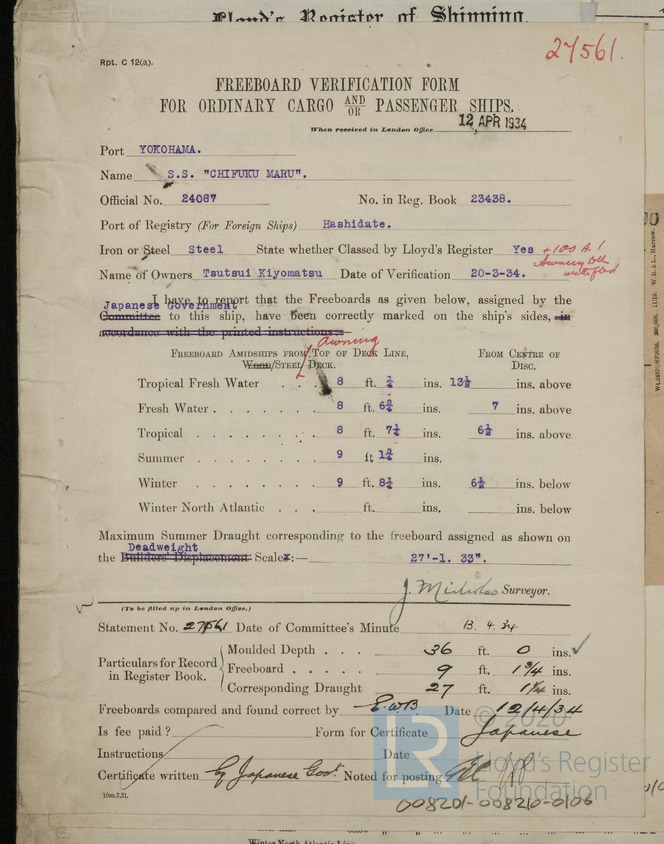 Lloyd's Register of Shipping.
27561.
Rpt. C 12(a).
FREEBOARD VERIFICATION FORM
FOR ORDINARY CARGO AND/OR PASSENGER SHIPS.
When received in London Office 12 APR 1934
Port YOKOHAMA.
Name S.S. "CHIFUKU MARU".
Official No. 24087 No. in Reg. Book 23438.
Port of Registry (For Foreign Ships) Hashidate.
Iron or Steel Steel State whether Classed by Lloyd's Register Yes +100 A1
Awning Dk
Name of Owners Tsutsui Kiyomatsu Date of Verification 20-3-34.
I have to report that the Freeboards as given below, assigned by the
Japanese Government
Committee to this ship, have been correctly marked on the ship's sides, in
accordance with the printed instructions.
Awning
FREEBOARD AMIDSHIPS FROM TOP OF DECK LINE, FROM CENTRE OF
WOOD/STEEL DECK. DISC.
Tropical Fresh Water . . . 8 ft. ¾ ins. 13½ ins. above
Fresh Water . . . . . . . 8 ft. 6¾ ins. 7 ins. above
Tropical . . . . . . . . 8 ft. 7¼ ins. 6½ ins. above
Summer . . . . . . . . 9 ft 1¾ ins.
Winter . . . . . . . . 9 ft. 8¼ ins. 6½ ins. below
Winter North Atlantic . . . ft. ins. ins. below
Maximum Summer Draught corresponding to the freeboard assigned as shown on
Deadweight
the Builders' Displacement Scale:— 27'-1. 33".
J. Nicholas Surveyor.
(To be filled up in London Office.)
Statement No. 27561 Date of Committee's Minute 13. 4. 34
Particulars for Record in Register Book.
Moulded Depth . . . 36 ft. 0 ins.
Freeboard . . . . . 9 ft. 1¾ ins.
Corresponding Draught 27 ft. 1¼ ins.
Freeboards compared and found correct by E.W.B Date 12/4/34
Is fee paid? Form for Certificate Japanese
Instructions Date
Certificate written By Japanese Govt. Noted for posting
10m.7.31.
© 2020
LR Lloyd's Register
Foundation
008201-008210-0106
Winter North Atlantic Line